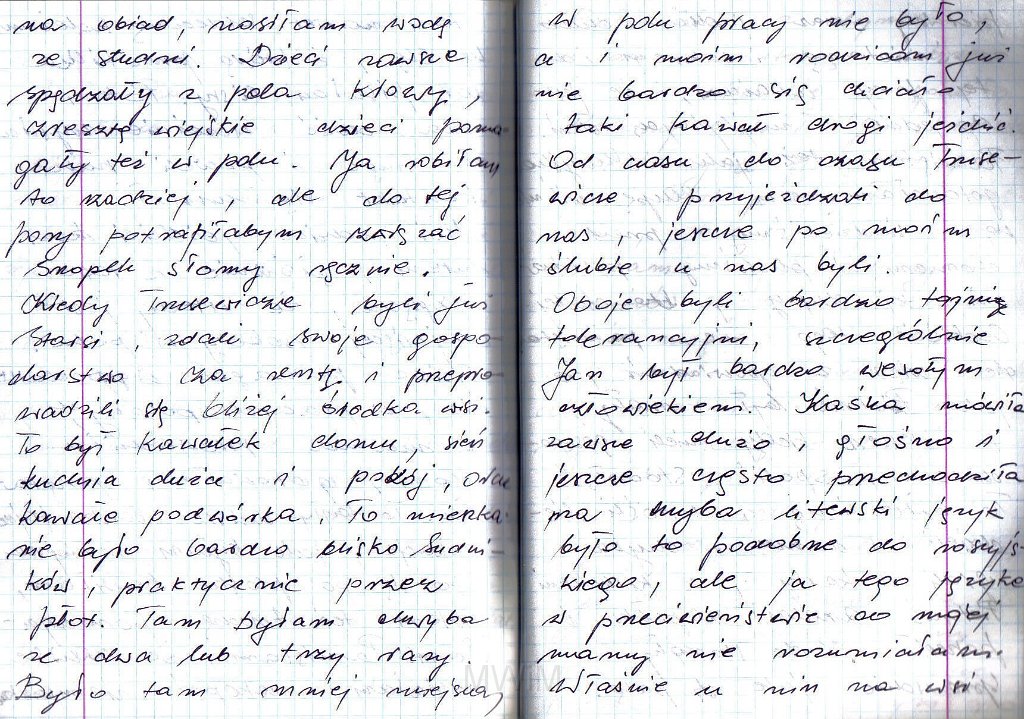 na obiad, nosiłam wodę
ze studni. Dzieci zawsze
spędzały z pola krowy,
zresztą wiejskie dzieci poma-
gały też w polu. Ja robiłam
to rzadziej, ale do tej
pory potrafiłabym związać
snopek słomy ręcznie.
Kiedy Trusewicze byli już
starsi, zdali swoje gospo-
darstwo za rentę i przepro-
wadzili się bliżej środka wsi.
To był kawałek domu, sień
kuchnia duża i pokój, oraz
kawałek podwórka. To mieszka-
nie było bardzo blisko Sudni-
ków, praktycznie przez
płot. Tam byłam chyba
ze dwa lub trzy razy.
Było tam mniej miejsca,
w polu pracy nie było,
a i moim rodzicom już
nie bardzo się chciało
taki kawał drogi jeździć.
Od czasu do czasu Truse-
wicze przyjeżdżali do
nas, jeszcze po moim
ślubie u nas byli.
Oboje byli bardzo fajni
tolerancyjni, szczególnie
Jan był bardzo wesołym
człowiekiem. Kaśka mówiła
zawsze dużo, głośno i
jeszcze często przechodziła
na chyba litewski język
było to podobne do rosyjs-
kiego, ale ja tego języka
w przeciwieństwie do mojej
mamy nie rozumiałam.
Właśnie u nich na wsi
MWM